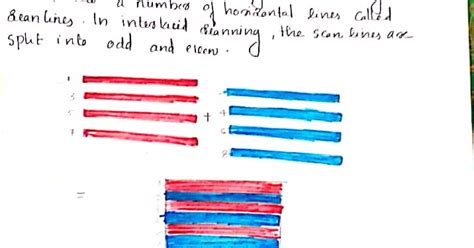 a number of horizontal lines called
Scanlines. In interlaced scanning, the scan lines are
split into odd and even.
1
3
5
7
+
2
4
6
8
=